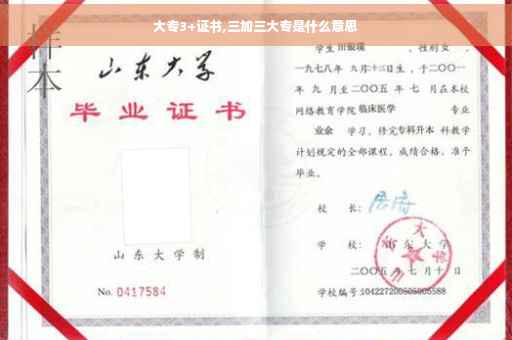 大专3+证书,三加三大专是什么意思
样本
山东大学
毕业证书
山东大学制
No. 0417584
学生 田 瑞 , 性别 女 ,
一九七八年 九月十三日生 , 于二〇〇一
年 九 月至二〇〇五 年 七 月在本校
网络教育学院 临床医学 专业
业余 学习 , 修完 专科升本 科教学
计划规定的全部课程 , 成绩合格 , 准予
毕业 。
校 长:
学 校: 山东大学
二〇〇五 年 七 月 十 日
学校编号: 104227200505005588
山东大学